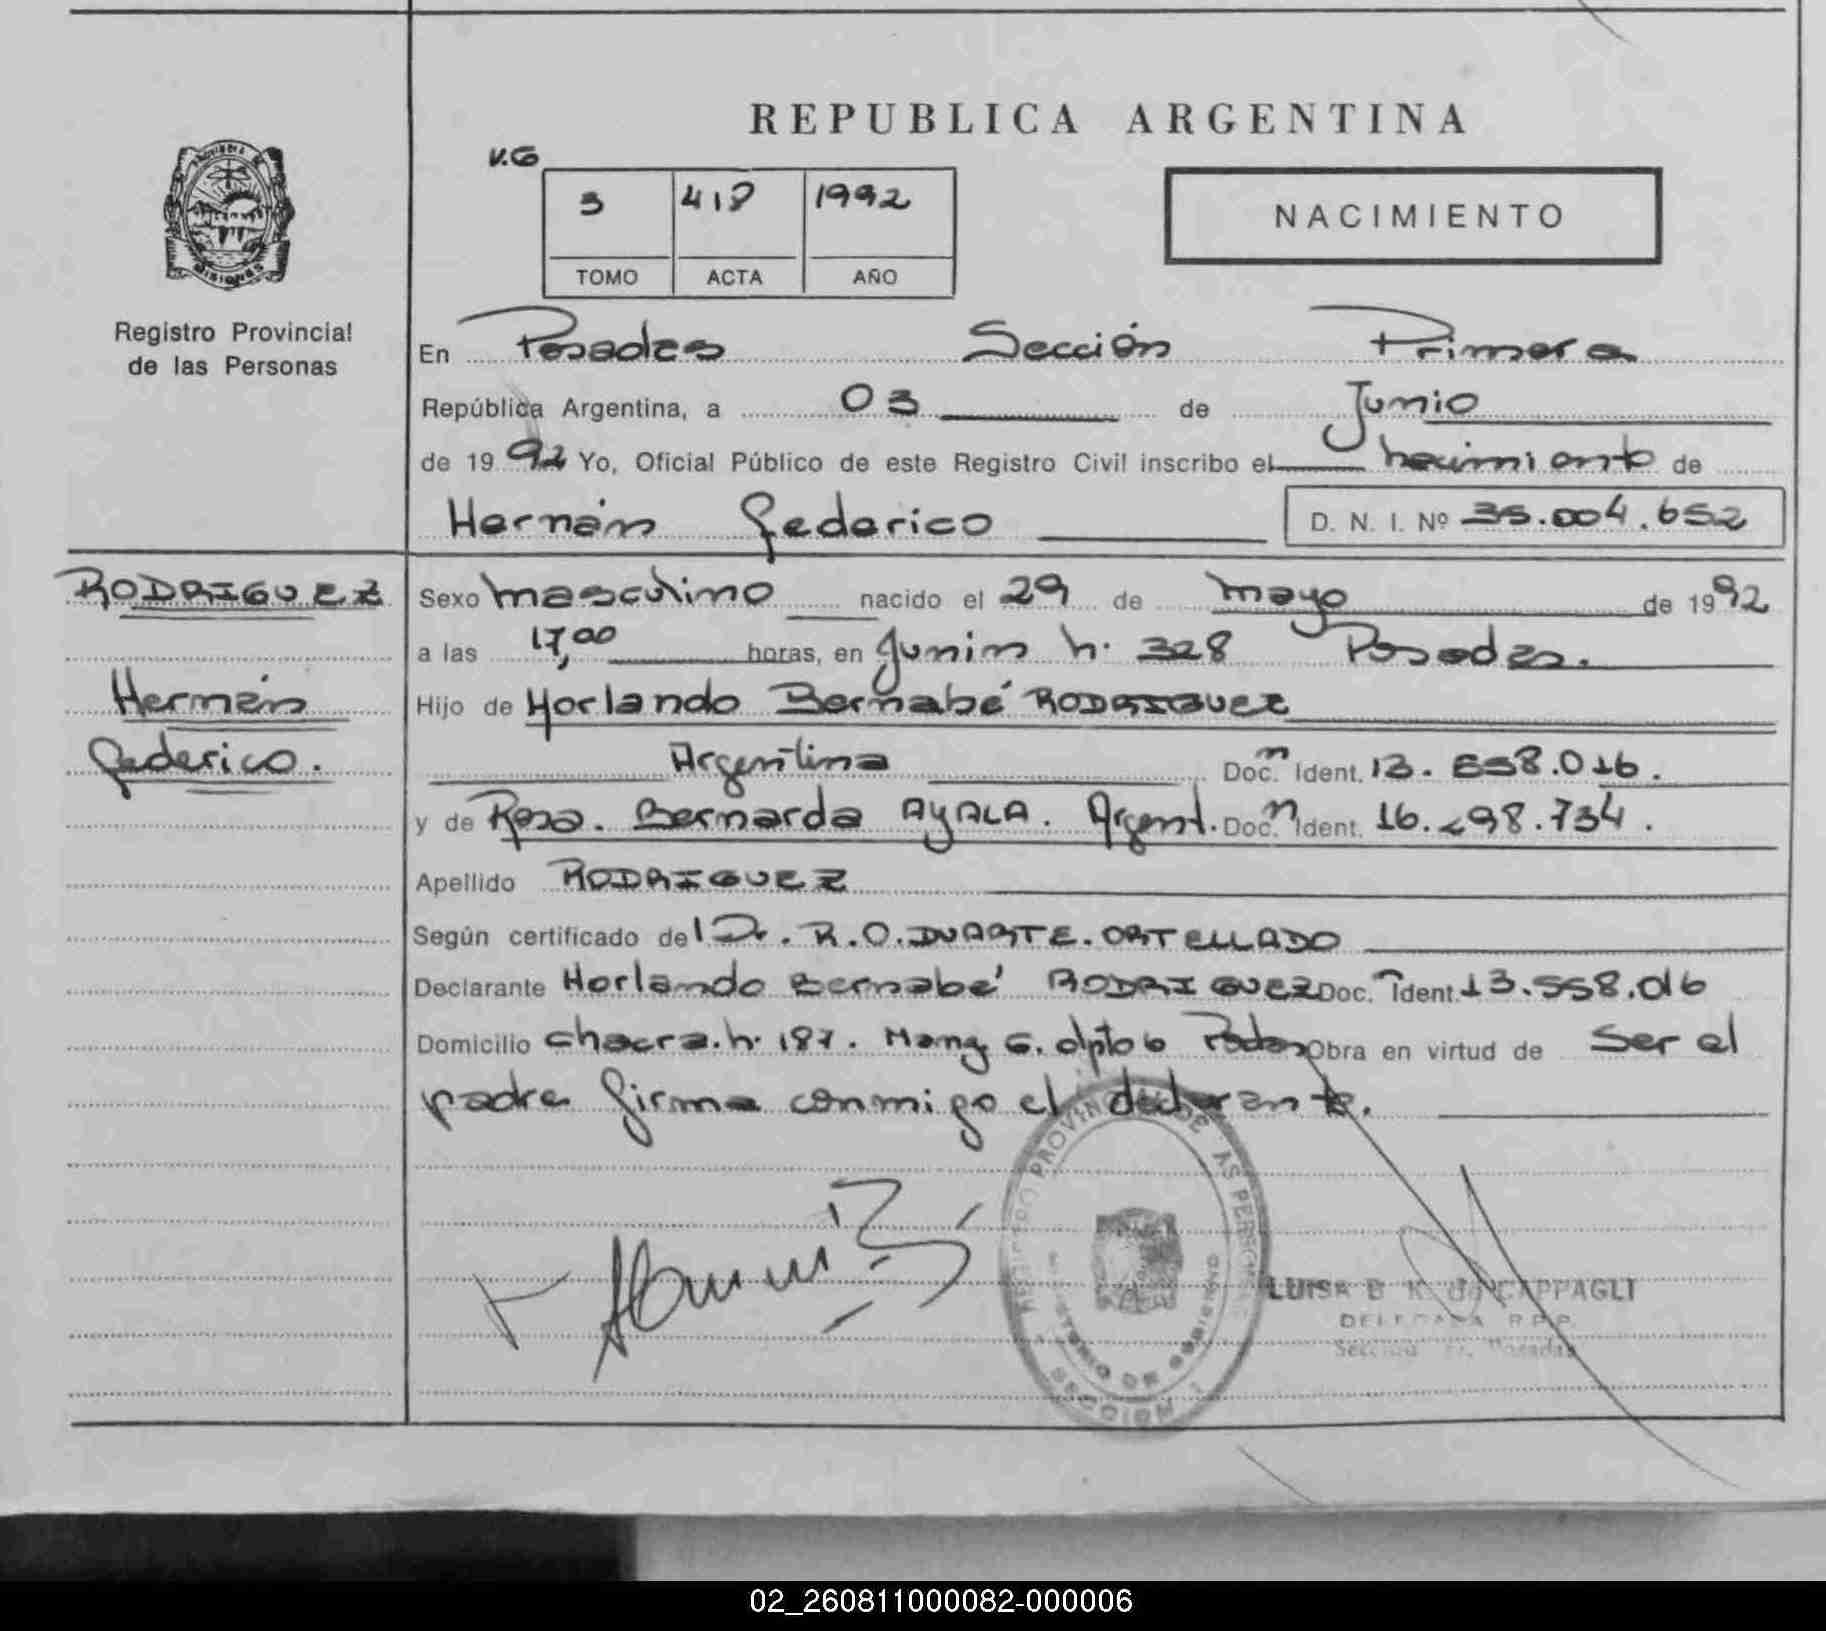 REPUBLICA ARGENTINA
V.G
3 418 1992
TOMO ACTA AÑO
NACIMIENTO
PROVINCIA DE MISIONES
Registro Provincial
de las Personas
En Posadas Sección Primera
República Argentina, a 03 de Junio
de 1992 Yo, Oficial Público de este Registro Civil inscribo el nacimiento de
Hernán Federico D. N. I. Nº 35.004.652
RODRIGUEZ
Hernán
Federico.
Sexo masculino nacido el 29 de mayo de 1992
a las 17,00 horas, en Junin n. 328 Posadas.
Hijo de Horlando Bernabé RODRIGUEZ
Argentina Doc. n Ident. 13.558.016.
y de Rosa. Bernarda AYALA. Argent. Doc. n Ident. 16.298.734.
Apellido RODRIGUEZ
Según certificado del Dr. R.O. DUARTE. ORTELLADO
Declarante Horlando Bernabé RODRIGUEZ Doc. n Ident. 13.558.016
Domicilio chacra. n. 187. Manz G. dpto 6 Pdas Obra en virtud de Ser el
padre firma conmigo el declarante.
REGISTRO PROVINCIAL DE LAS PERSONAS
MINISTERIO DE GOBIERNO
SECCION 1
LUISA B K. de CAPPAGLI
DELEGADA R.P.P.
Sección 1a. Posadas
02_260811000082-000006